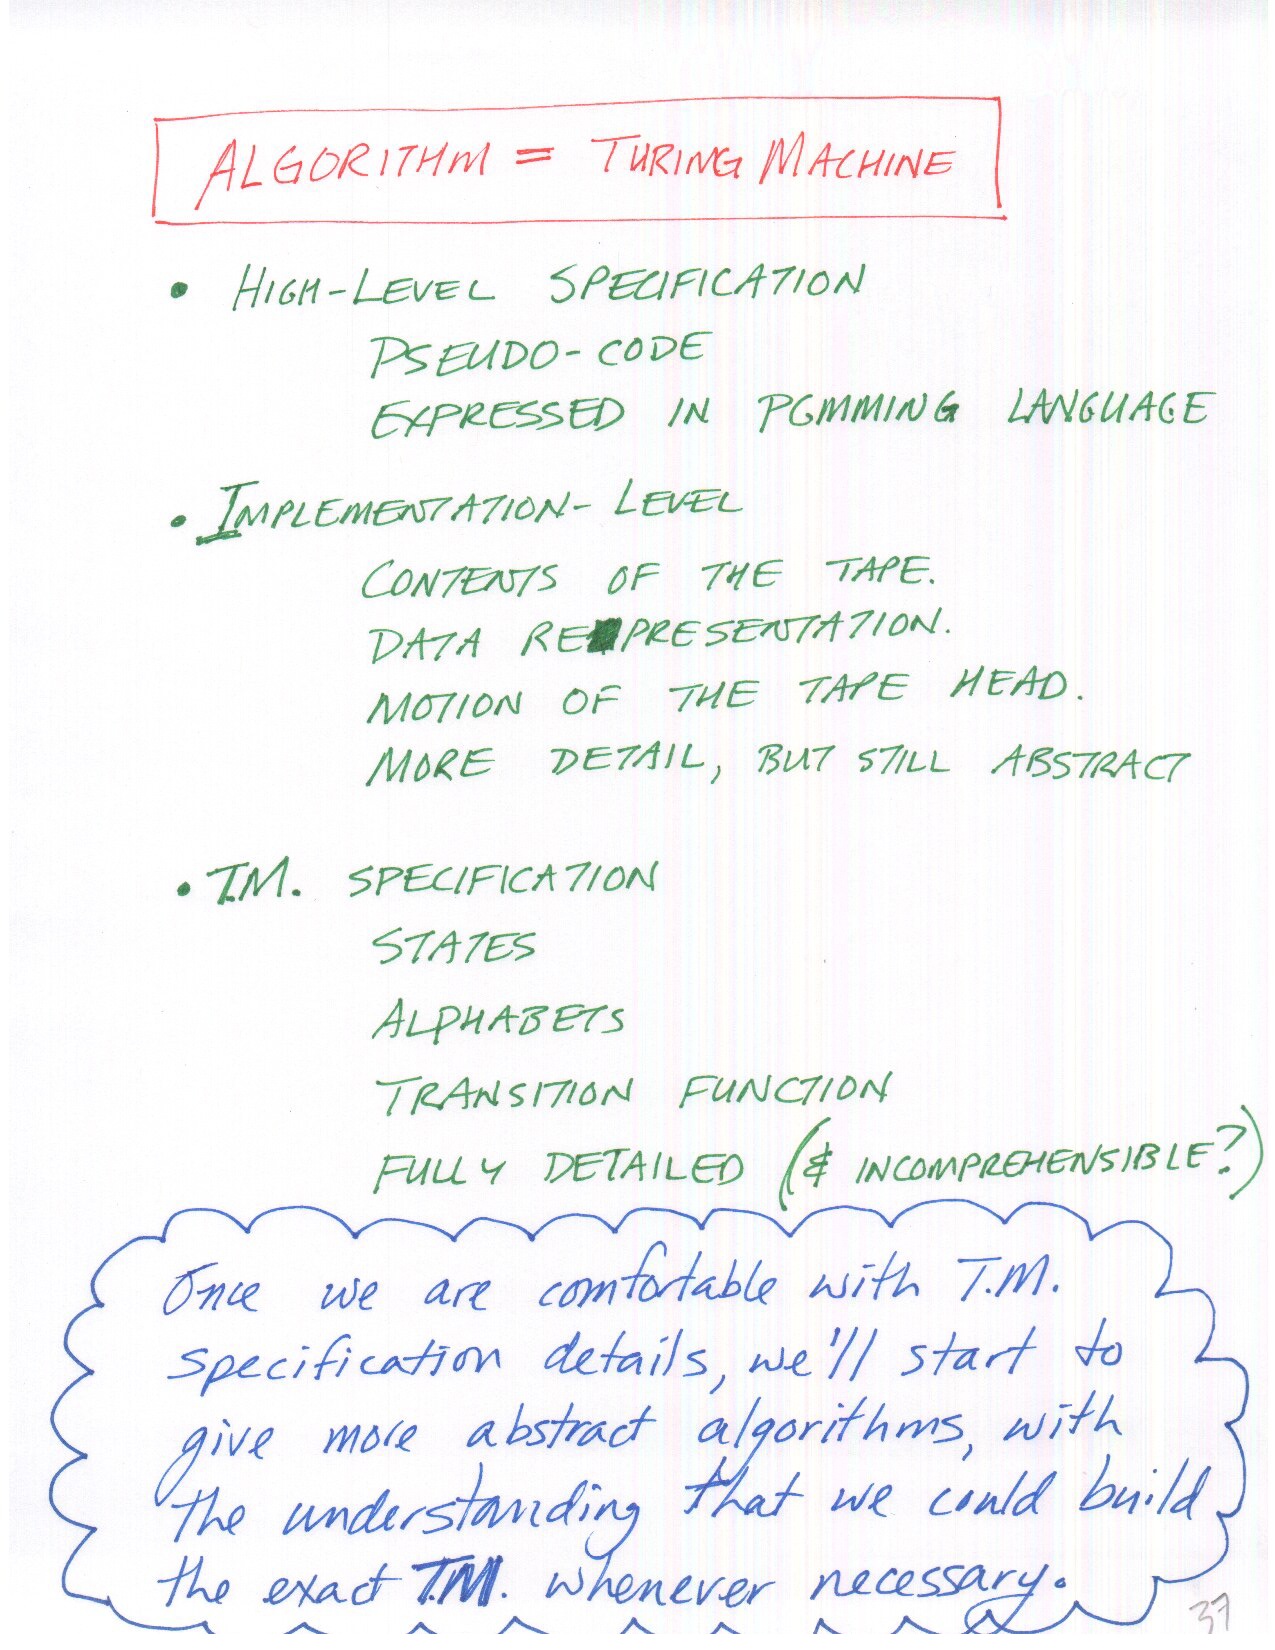 ALGORITHM = TURING MACHINE
• HIGH-LEVEL SPECIFICATION
PSEUDO-CODE
EXPRESSED IN PGMMING LANGUAGE
• IMPLEMENTATION-LEVEL
CONTENTS OF THE TAPE.
DATA REPRESENTATION.
MOTION OF THE TAPE HEAD.
MORE DETAIL, BUT STILL ABSTRACT
• T.M. SPECIFICATION
STATES
ALPHABETS
TRANSITION FUNCTION
FULLY DETAILED (& INCOMPREHENSIBLE?)
Once we are comfortable with T.M.
specification details, we'll start to
give more abstract algorithms, with
the understanding that we could build
the exact T.M. whenever necessary.
37